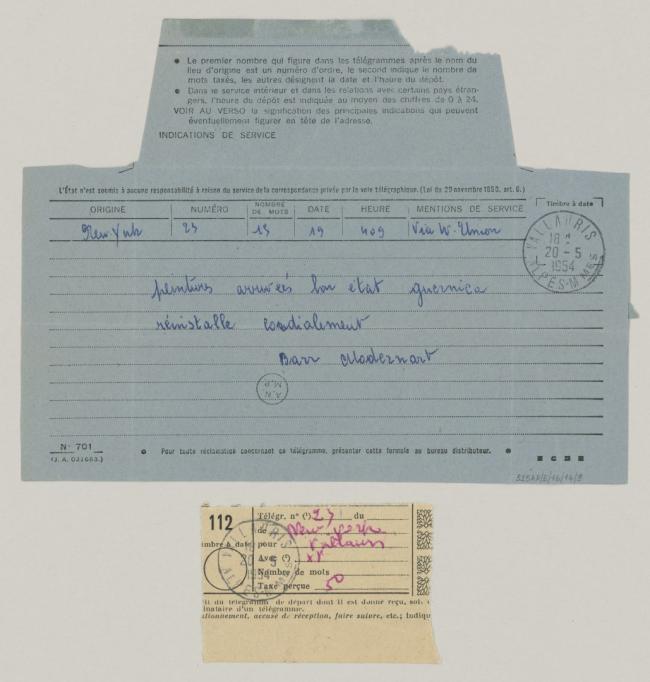 ● Le premier nombre qui figure dans les télégrammes après le nom du
lieu d'origine est un numéro d'ordre, le second indique le nombre de
mots taxés, les autres désignent la date et l'heure du dépôt.
● Dans le service intérieur et dans les relations avec certains pays étran-
gers, l'heure du dépôt est indiquée au moyen des chiffres de 0 à 24.
VOIR AU VERSO la signification des principales indications qui peuvent
éventuellement figurer en tête de l'adresse.
INDICATIONS DE SERVICE
L'État n'est soumis à aucune responsabilité à raison du service de la correspondance privée par la voie télégraphique. (Loi du 29 novembre 1850, art. 6.)
ORIGINE NUMÉRO NOMBRE DE MOTS DATE HEURE MENTIONS DE SERVICE Timbre à date
New York 23 13 19 409 Via W. Union
VALLAURIS
18
20 - 5
1954
ALPES-MMES
peintures arrivées bon état guernica
réinstalle cordialement
Barr Modernart
A.N
M.P
N° 701
(J. A. 031663.)
● Pour toute réclamation concernant ce télégramme, présenter cette formule au bureau distributeur. ●
515AP/E/16/14/3
112
Télégr. n° (¹) 23 du
de New York
timbre à date pour Vallauris
Avec (²) xx
Nombre de mots
Taxe perçue 50
VALLAURIS
20 5
1954
ALPES-MMES
du télégramme de départ dont il est donné reçu, soit
inataire d'un télégramme.
ationnement, accusé de réception, faire suivre, etc.; indiqu